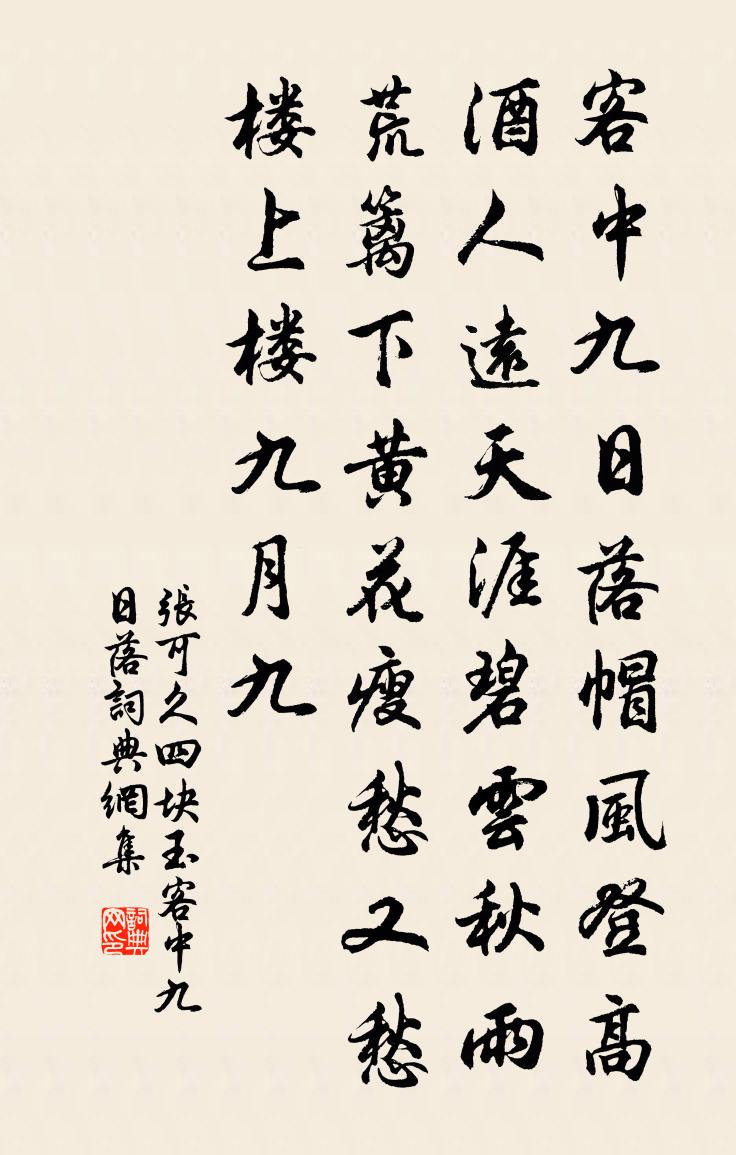 客中九日落帽風登高
酒人遠天涯碧雲秋雨
荒籬下黄花瘦愁又愁
楼上楼九月九
張可久四块玉客中九
日落詞典網集
詞典网印